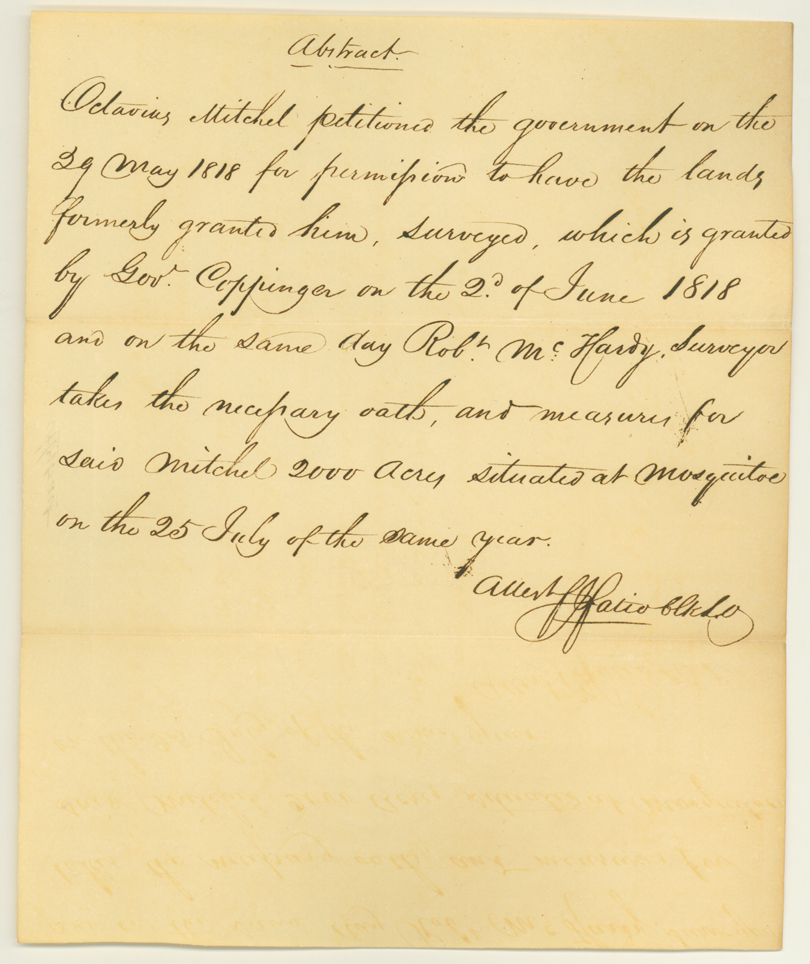 Abstract.
Octavius Mitchel petitioned the government on the
29 May 1818 for permission to have the lands
formerly granted him, surveyed, which is granted
by Govr. Coppinger on the 2d. of June 1818
and on the same day Robt. Mc. Hardy, Surveyor
takes the necessary oath, and measures for
said Mitchel 2000 Acres situated at Mosquitoe
on the 25 July of the same year.
Attest F J Fatio Clk L.O